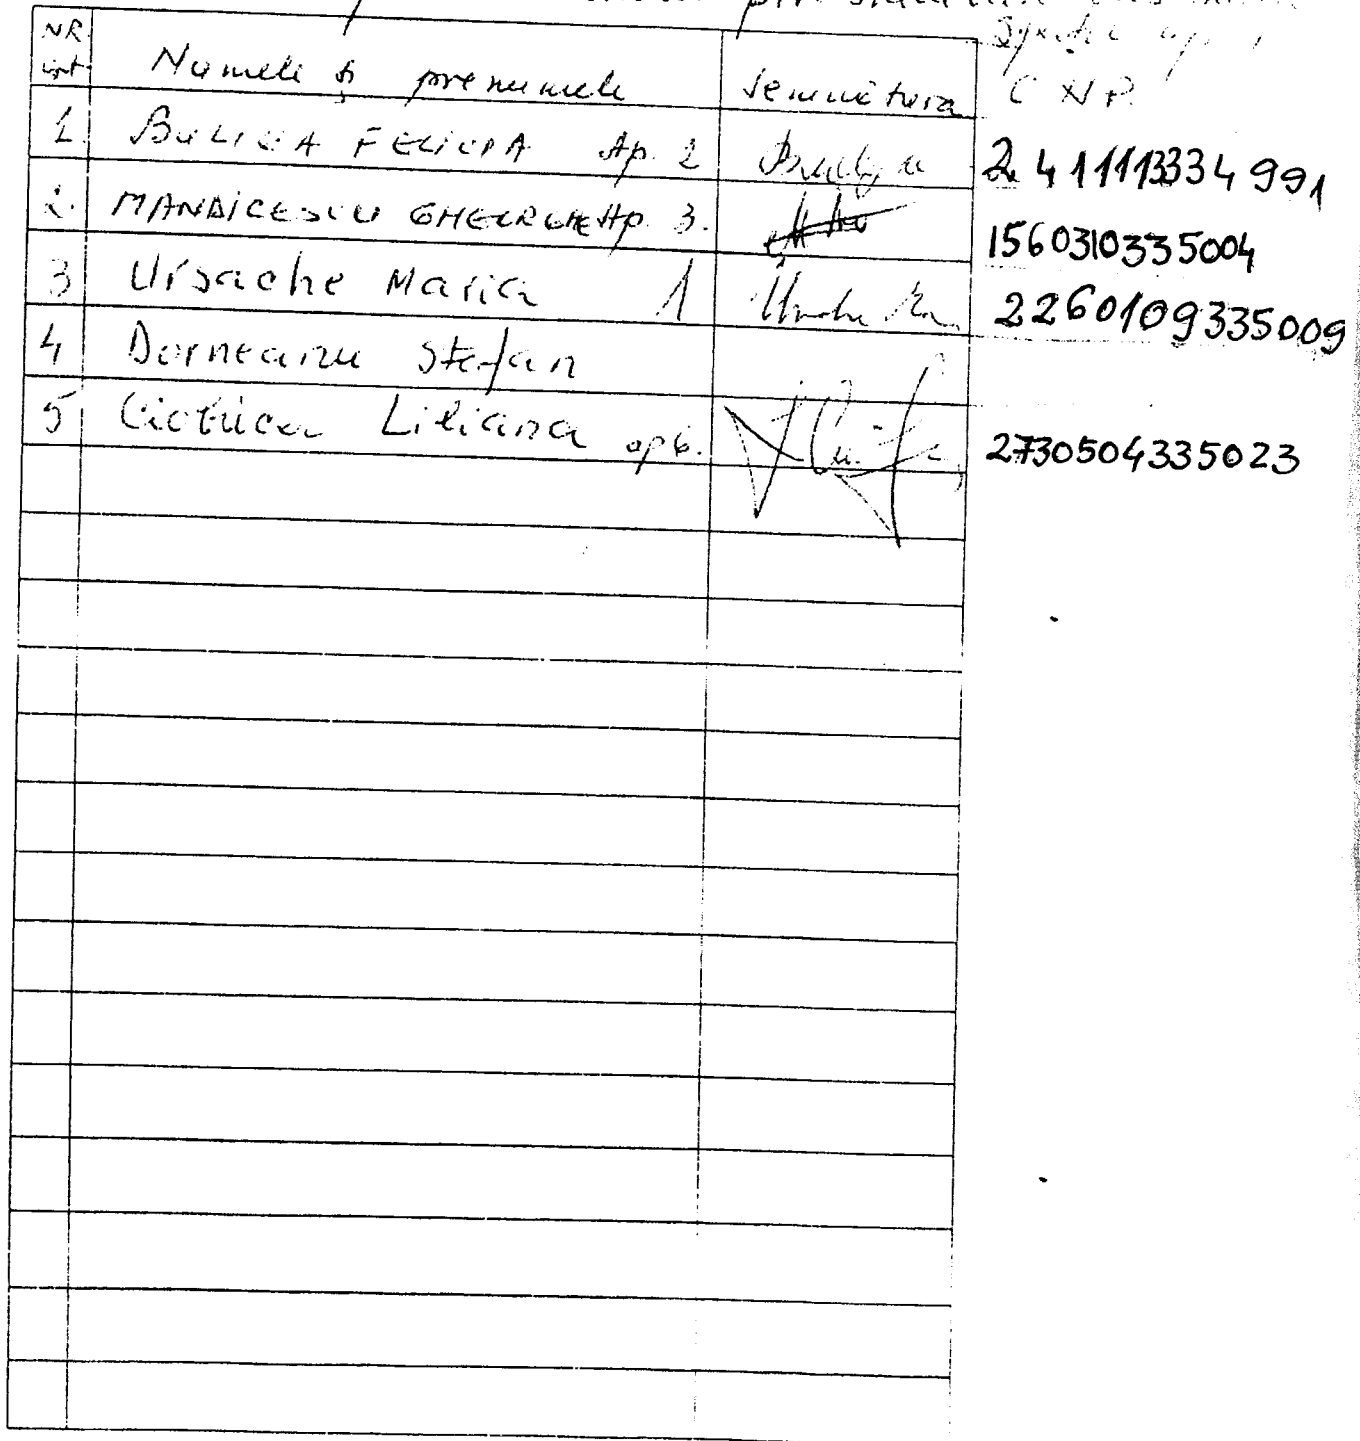 NR
crt.
Numele și prenumele semnătura CNP.
1. BULIGA FELICIA Ap. 2 2411113334991
2. MANDICESCU GHEORGHE Ap. 3. 1560310335004
3 Ursache Maria 1 2260109335009
4 Dorneanu Stefan
5 Liliana ap 6. 2730504335023